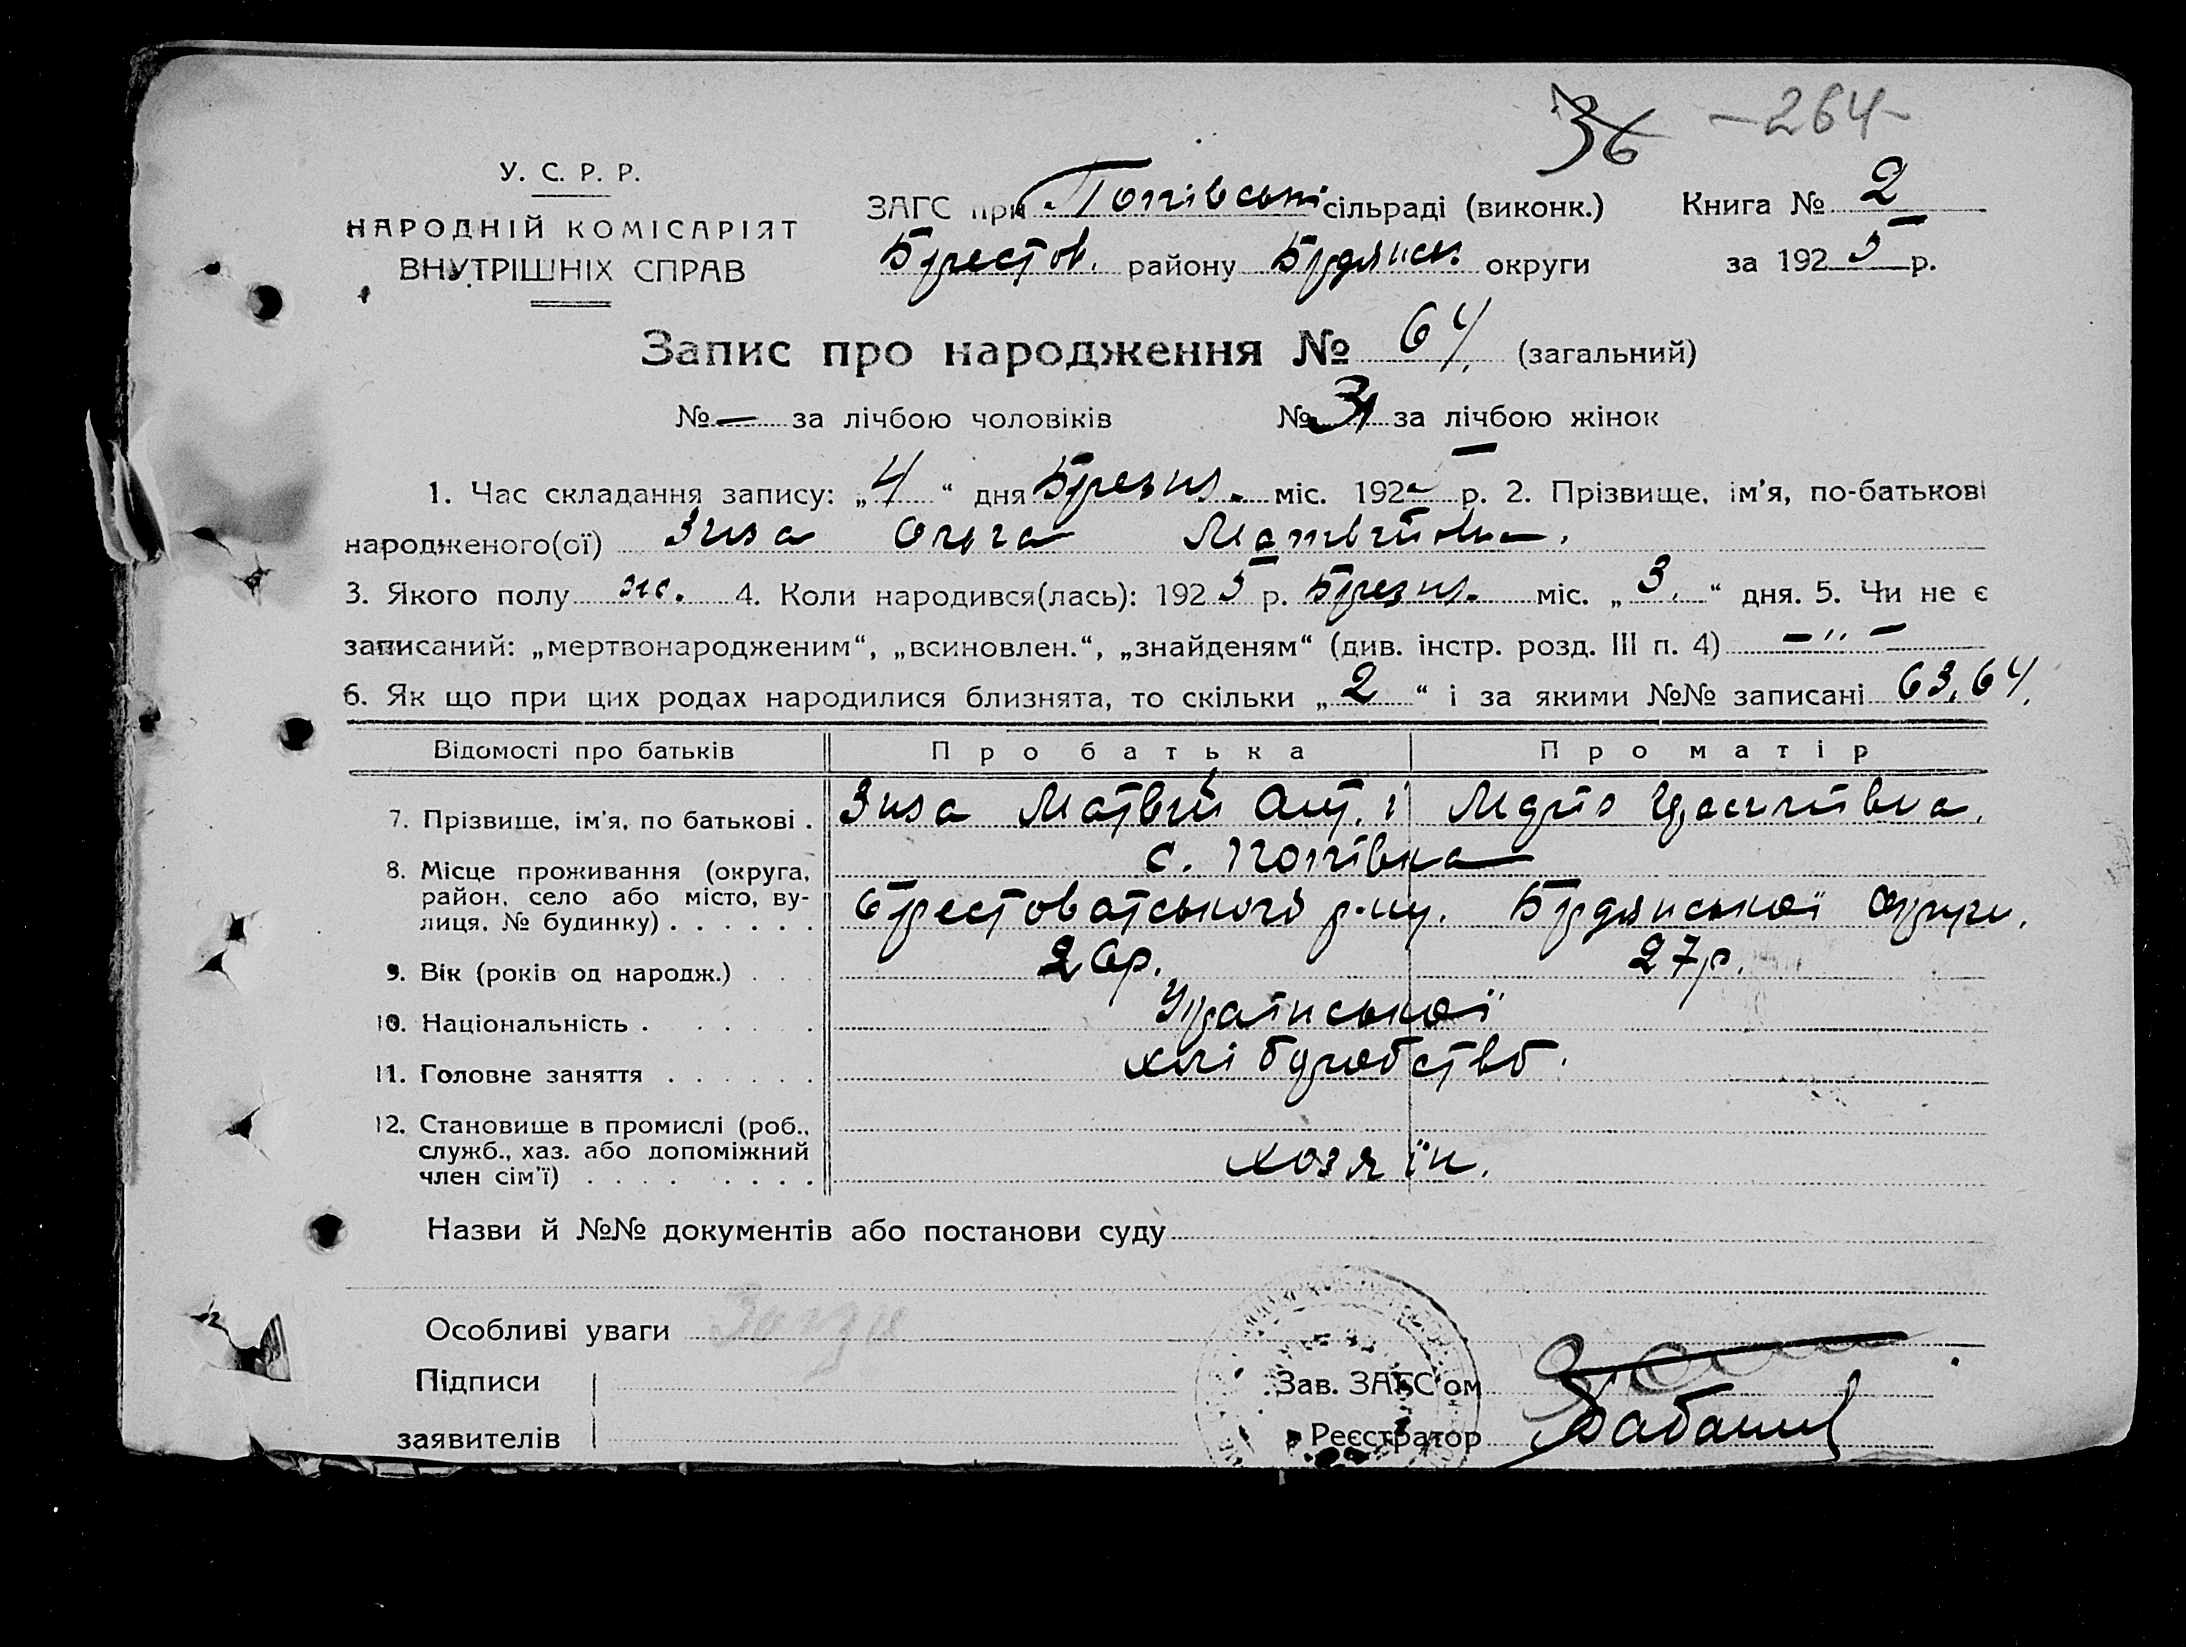 36 -264-
У. С. Р. Р.
НАРОДНІЙ КОМІСАРІЯТ
ВНУТРІШНІХ СПРАВ
ЗАГС при Попівські сільраді (виконк.) Книга № 2
Берестов. району Бердянськ. округи за 1925 р.
Запис про народження № 64 (загальний)
№ — за лічбою чоловіків № 31 за лічбою жінок
1. Час складання запису: „4“ дня Березня міс. 1925 р. 2. Прізвище, ім'я, по-батькові
народженого(ої) Зиза Ольга Матвіївна.
3. Якого полу ж. 4. Коли народився(лась): 1925 р. Березня міс. „3.“ дня. 5. Чи не є
записаний: „мертвонародженим“, „всиновлен.“, „знайденям“ (див. інстр. розд. III п. 4) —„—
6. Як що при цих родах народилися близнята, то скільки „2“ і за якими №№ записані 63, 64.
Відомості про батьків Про батька Про матір
7. Прізвище, ім'я, по батькові . Зиза Матвій Ант. і Марія
8. Місце проживання (округа, с. Попівка
район, село або місто, ву-
лиця, № будинку) . . . . . . Берестоватського р-ну. Бердянської округи.
9. Вік (років од народж.) . . . 26р. 27р.
10. Національність . . . . . Української
11. Головне заняття . . . . . . хліборобство.
12. Становище в промислі (роб.,
служб., хаз. або допоміжний хозяїн.
член сім'ї) . . . . . . . . .
Назви й №№ документів або постанови суду
Особливі уваги
Підписи Зав. ЗАГС'ом
заявителів Реєстратор